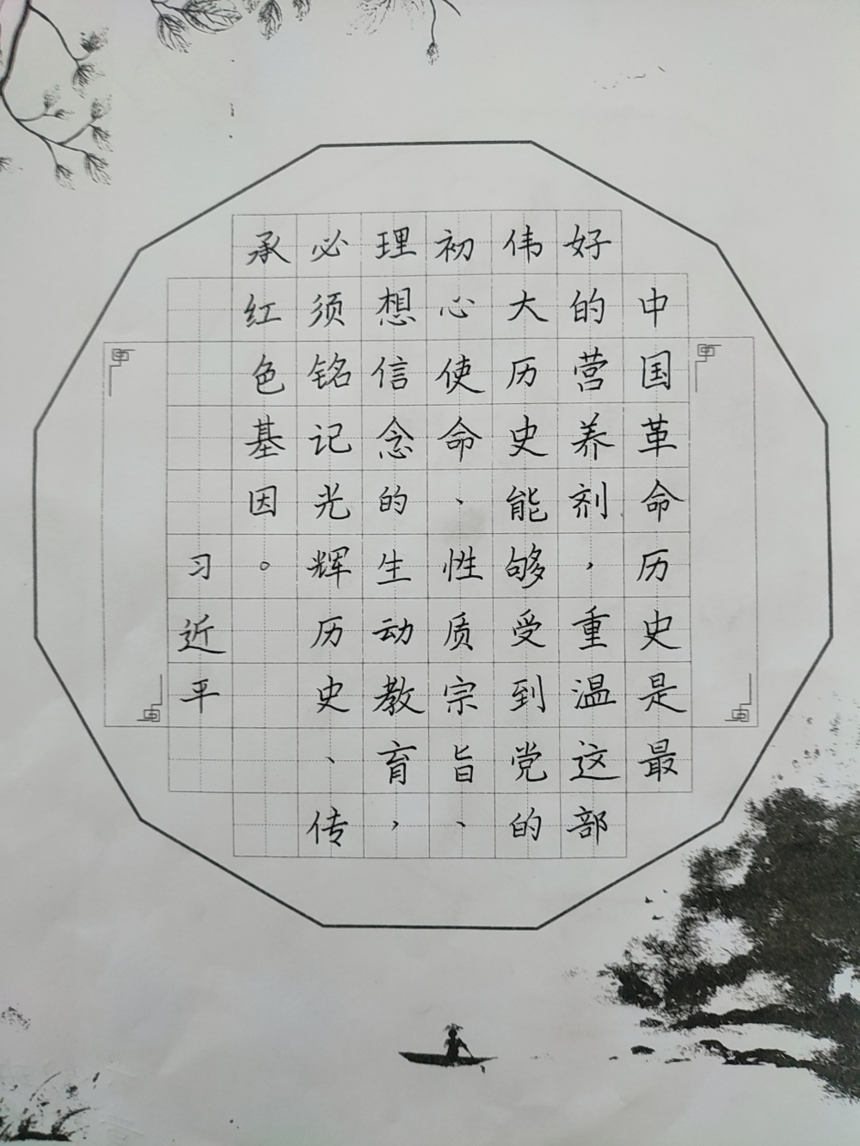 中国革命历史是最
好的营养剂，重温这部
伟大历史能够受到党的
初心使命、性质宗旨、
理想信念的生动教育，
必须铭记光辉历史、传
承红色基因。
习近平